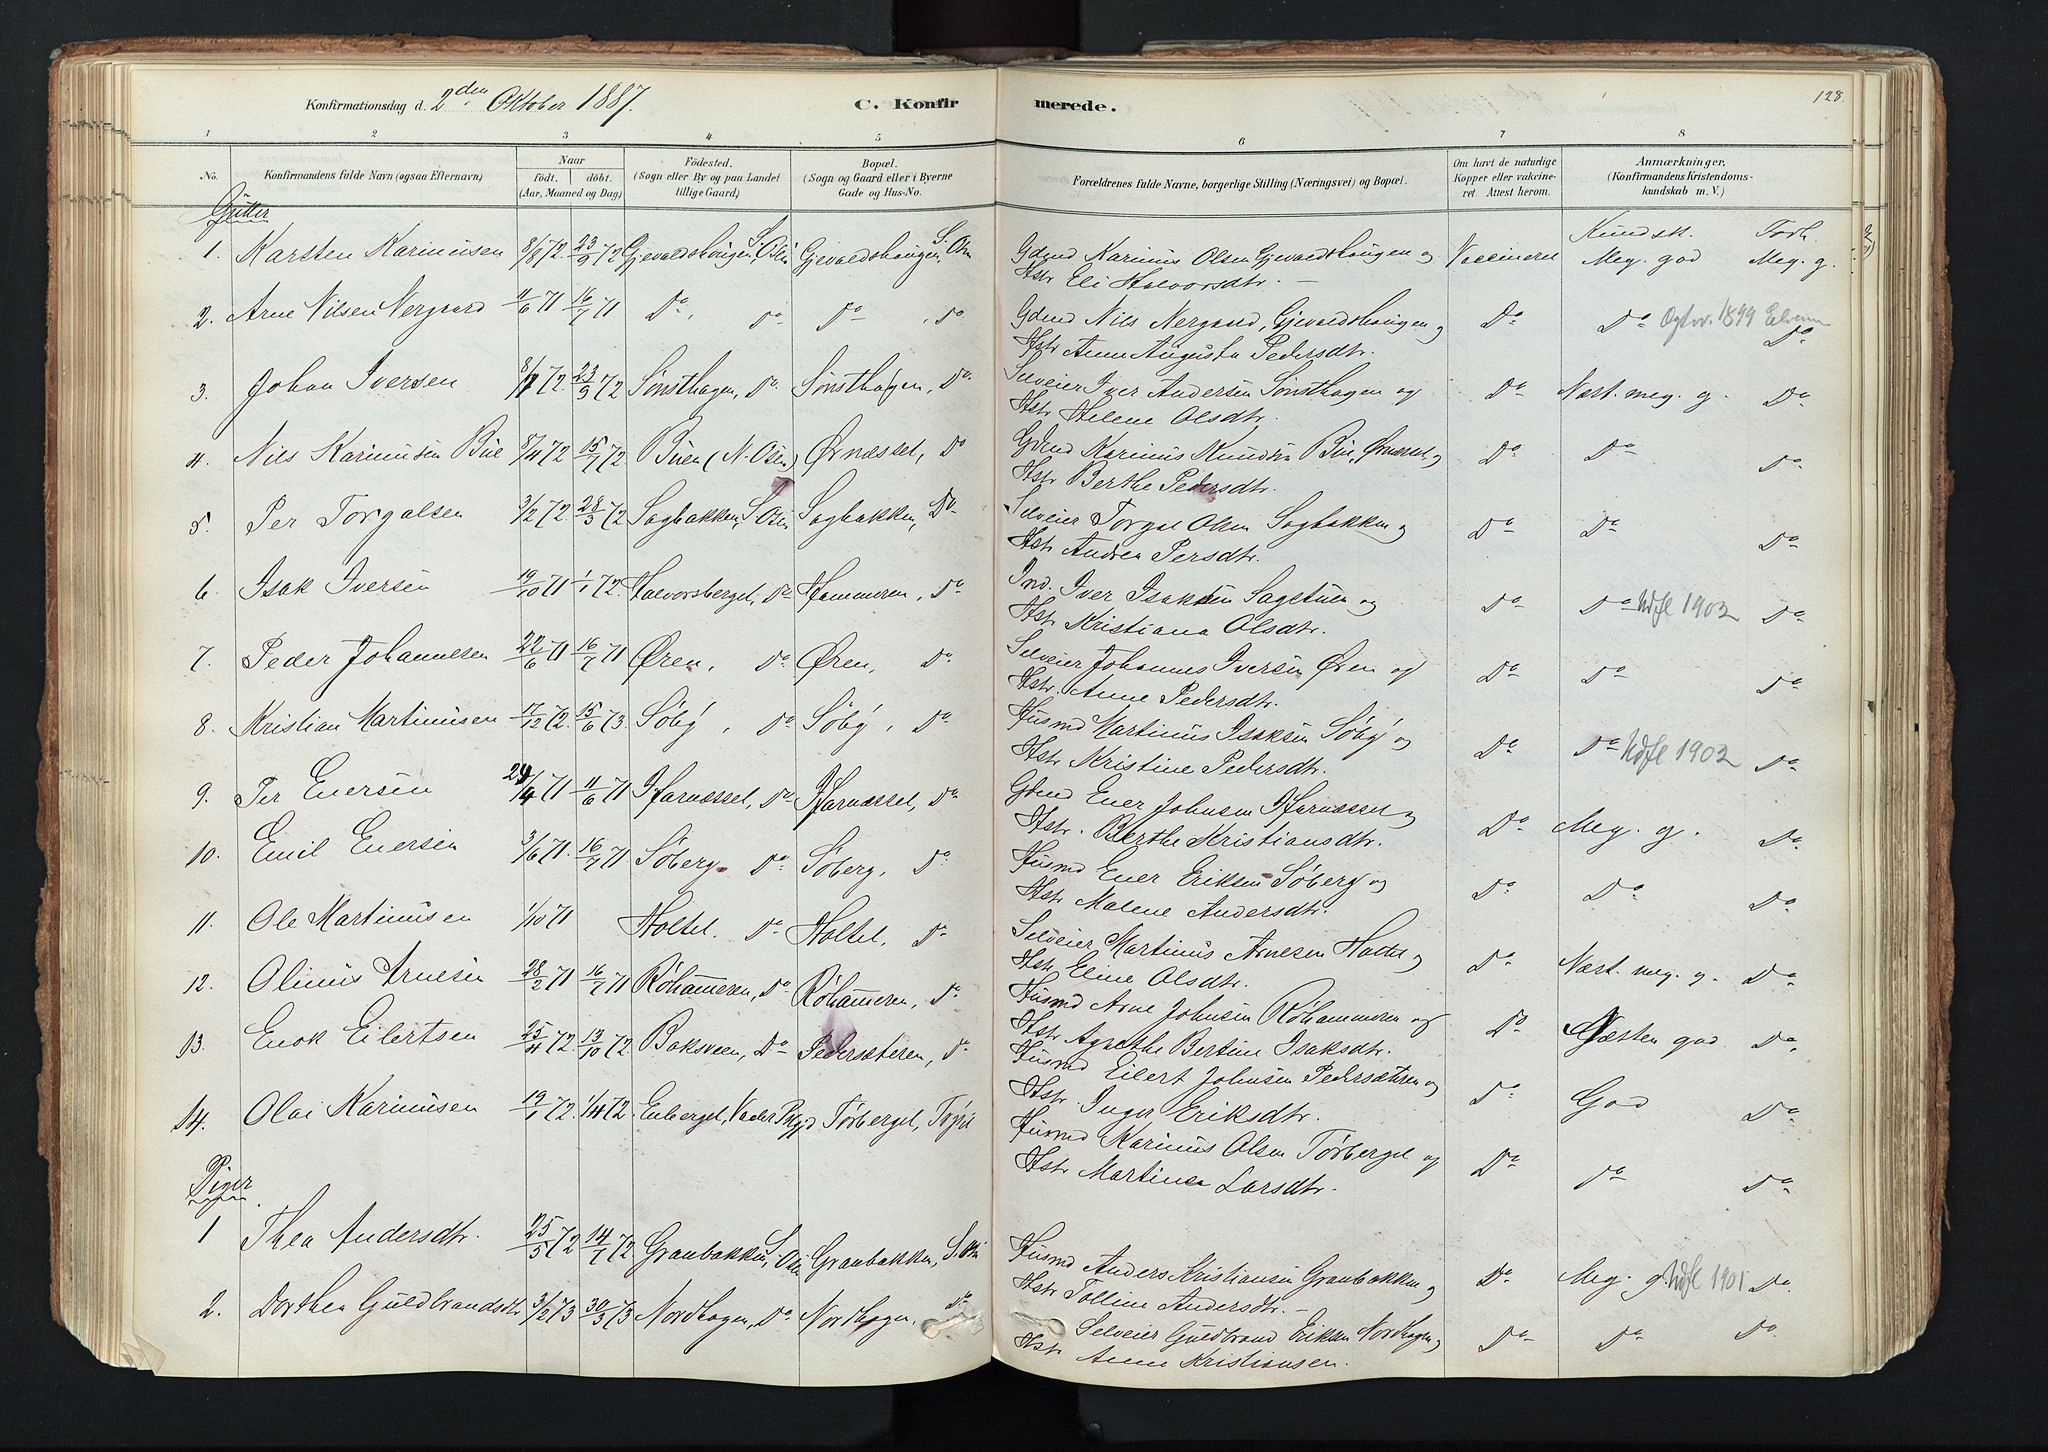 Konfirmationsdag d. 2den Oktober 1887. C. Konfir merede. 128.
1 2 3 4 5 6 7 8
No. Konfirmandens fulde Navn (ogsaa Efternavn) Naar födt. döbt. (Aar, Maaned og Dag) Födested. (Sogn eller By og paa Landet tillige Gaard) Bopæl. (Sogn og Gaard eller i Byerne Gade og Hus-No. Forældrenes fulde Navne, borgerlige Stilling (Næringsvei) og Bopæl. Om havt de naturlige Kopper eller vakcineret. Attest herom. Anmærkninger. (Konfirmandens Kristendomskundskab m. V.)
Gutter Kundsk. Forh.
1. Karsten Karinusen 8/8 72 23/9 72 Gjevaldshaugen, S. Osen Gjevaldshaugen, S. Osen Gdmd Karinus Olsen Gjevaldshaugen og Vaccineret Meg. god Meg. g.
Hstr Eli Halvorsdtr. —
2. Arne Nilsen Nergaard 11/6 71 16/7 71 Do, Do Do, Do Gdmd Nils Nergaard, Gjevaldshaugen og Do Do 1899 Elverum Do
Hstr Anne Augusta Pedersdtr.
3. Johan Iversen 8/7 72 23/9 72 Sønsthagen, Do Sønsthagen, Do Selveier Iver Andersen Sønsthagen og Do Næst. meg. g. Do
Hstr Helene Olsdtr.
4. Nils Karinusen Bue 8/4 72 15/7 72 Buen (N. Osen) Ørnæsset, Do Gdmd Karinus Knudsen Bue, Ørnæsset og Do Do Do
Hstr Berthe Pedersdtr.
5. Per Torgalsen 3/2 72 28/5 72 Sagbakken, S. Osen Sagbakken, Do Selveier Torgal Olsen Sagbakken og Do Do Do
Hstr Andrea Persdtr.
6. Isak Iversen 19/10 71 1/1 72 Halvorsberget, Do Hammeren, Do Ind. Iver Isaksen Sagstuen og Do Do Udfl 1902 Do
Hstr Kristiana Olsdtr.
7. Peder Johannesen 22/6 71 16/7 71 Øren, Do Øren, Do Selveier Johannes Iversen Øren og Do Do Do
Hstr. Anne Pedersdtr.
8. Kristian Martinusen 17/12 72 15/6 73 Søby, Do Søby, Do Husmd Martinus Isaksen Søby og Do Do Udfl 1902 Do
Hstr Kristine Pedersdtr.
9. Per Enersen 24/4 71 11/6 71 Ifarnæsset, Do Ifarnæsset, Do Gdmd Ener Johnsen Ifarnæsset og Do Meg. g. Do
Hstr. Berthe Kristiansdtr.
10. Emil Enersen 3/6 71 16/7 71 Søberg Do Søberg, Do Husmd Ener Eriksen Søberg og Do Do Do
Hstr Malene Andersdtr.
11. Ole Martinusen 1/10 71 Holtet, Do Holtet, Do Selveier Martinus Arnesen Holtet og Do Næst. meg. g. Do
Hstr Eline Olsdtr.
12. Olinus Arnesen 28/2 71 16/7 71 Röhammeren, Do Röhammeren, Do Husmd Arne Johnsen Röhammeren og Do Næsten god Do
Hstr Agnethe Bertine Isaksdtr.
13. Enok Eilertsen 25/4 72 13/10 72 Baksveen, Do Pedersæteren, Do Husmd Eilert Johnsen Pedersæteren og Do God Do
Hstr. Inger Eriksdtr.
14. Olai Karinusen 19/1 72 1/4 72 Enberget, Tørberget, Trysil Husmd Karinus Olsen Tørberget og Do Do Do
Hstr Martinea Larsdtr.
Piger
1 Thea Andersdtr. 25/5 72 14/7 72 Granbakken, S. Osen Granbakken, S. Osen Husmd Anders Kristiansen Granbakken og Do Meg. g. Udfl 1901 Do
Hstr Tolline Andersdtr. —
2. Dorthea Guldbrandsdtr 3/2 73 30/3 73 Nordhagen, Do Nordhagen, Do Selveier Guldbrand Eriksen Nordhagen og Do Do Do
Hstr Anne Kristiansen.